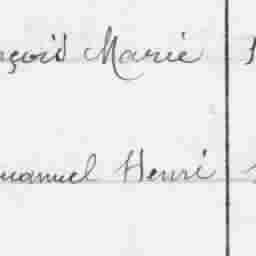 nçois Marie
manuel Henri